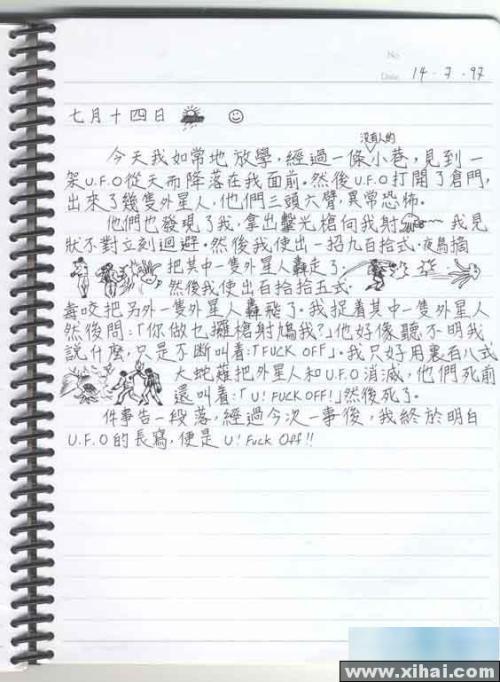 No.
Date. 14 . 7 . 97
七月十四日
沒有人的
今天我如常地放學，經過一條小巷，見到一
架U.F.O從天而降落在我面前。然後U.F.O打開了倉門，
出來了幾隻外星人，他們三頭六臂，異常恐怖。
他們也發現了我，拿出擊光槍向我射 我見
狀不對立刻迴避。然後我使出一招九百拾式．
把其中一隻外星人轟走了．
然後我使出百拾拾五式．
毒咬把另外一隻外星人轟飛了。我捉着其中一隻外星人
然後問：「你做乜攞槍射鳩我？」他好像聽不明我
說什麼，只是不斷叫着：「FUCK OFF」。我只好用裏百八式
大蛇薙把外星人和U.F.O消滅，他們死前
還叫着：「U！FUCK OFF！」然後死了。
件事告一段落，經過今次一事後，我終於明白
U.F.O的長寫，便是U！Fuck Off!!
www.xihai.com